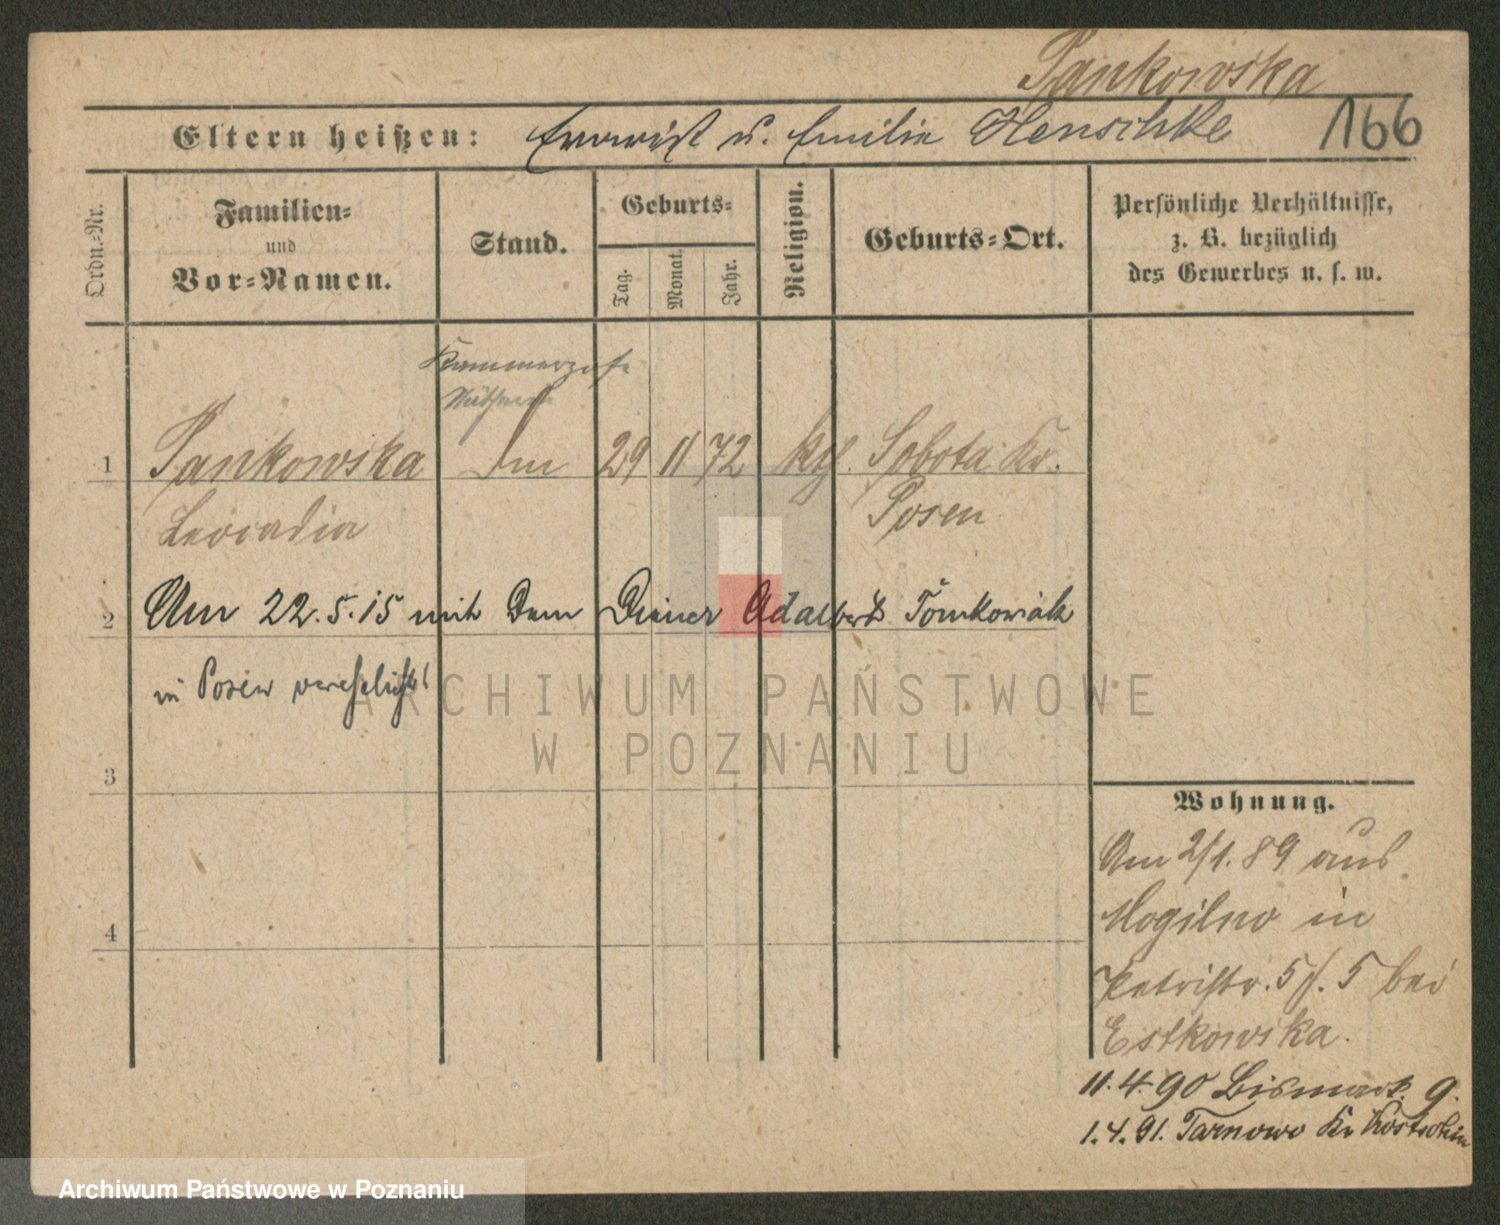 Pankowska
166
Eltern heißen: Ewarist u. Emilie Henschke
Ordn.-Nr.
Familien-
und
Vor-Namen.
Stand.
Geburts-
Tag.
Monat.
Jahr.
Religion.
Geburts-Ort.
Persönliche Verhältnisse,
z. B. bezüglich
des Gewerbes u. s. w.
Kammerzofe
1 Pankowska 29 11 72 kth. Sobota Kr.
Leocadia Posen
2 Am 22.5.15 mit dem Diener Adalbert Tomkowiak
in Posen verehelicht!
ARCHIWUM PAŃSTWOWE
W POZNANIU
3
4
Wohnung.
Am 2/1. 89 aus
Mogilno in
Petristr. 5 /. 5 bei
Estkowska.
11.4.90 Bismarck. 9.
1.4.91. Tarnowo Kr Kostschin
Archiwum Państwowe w Poznaniu